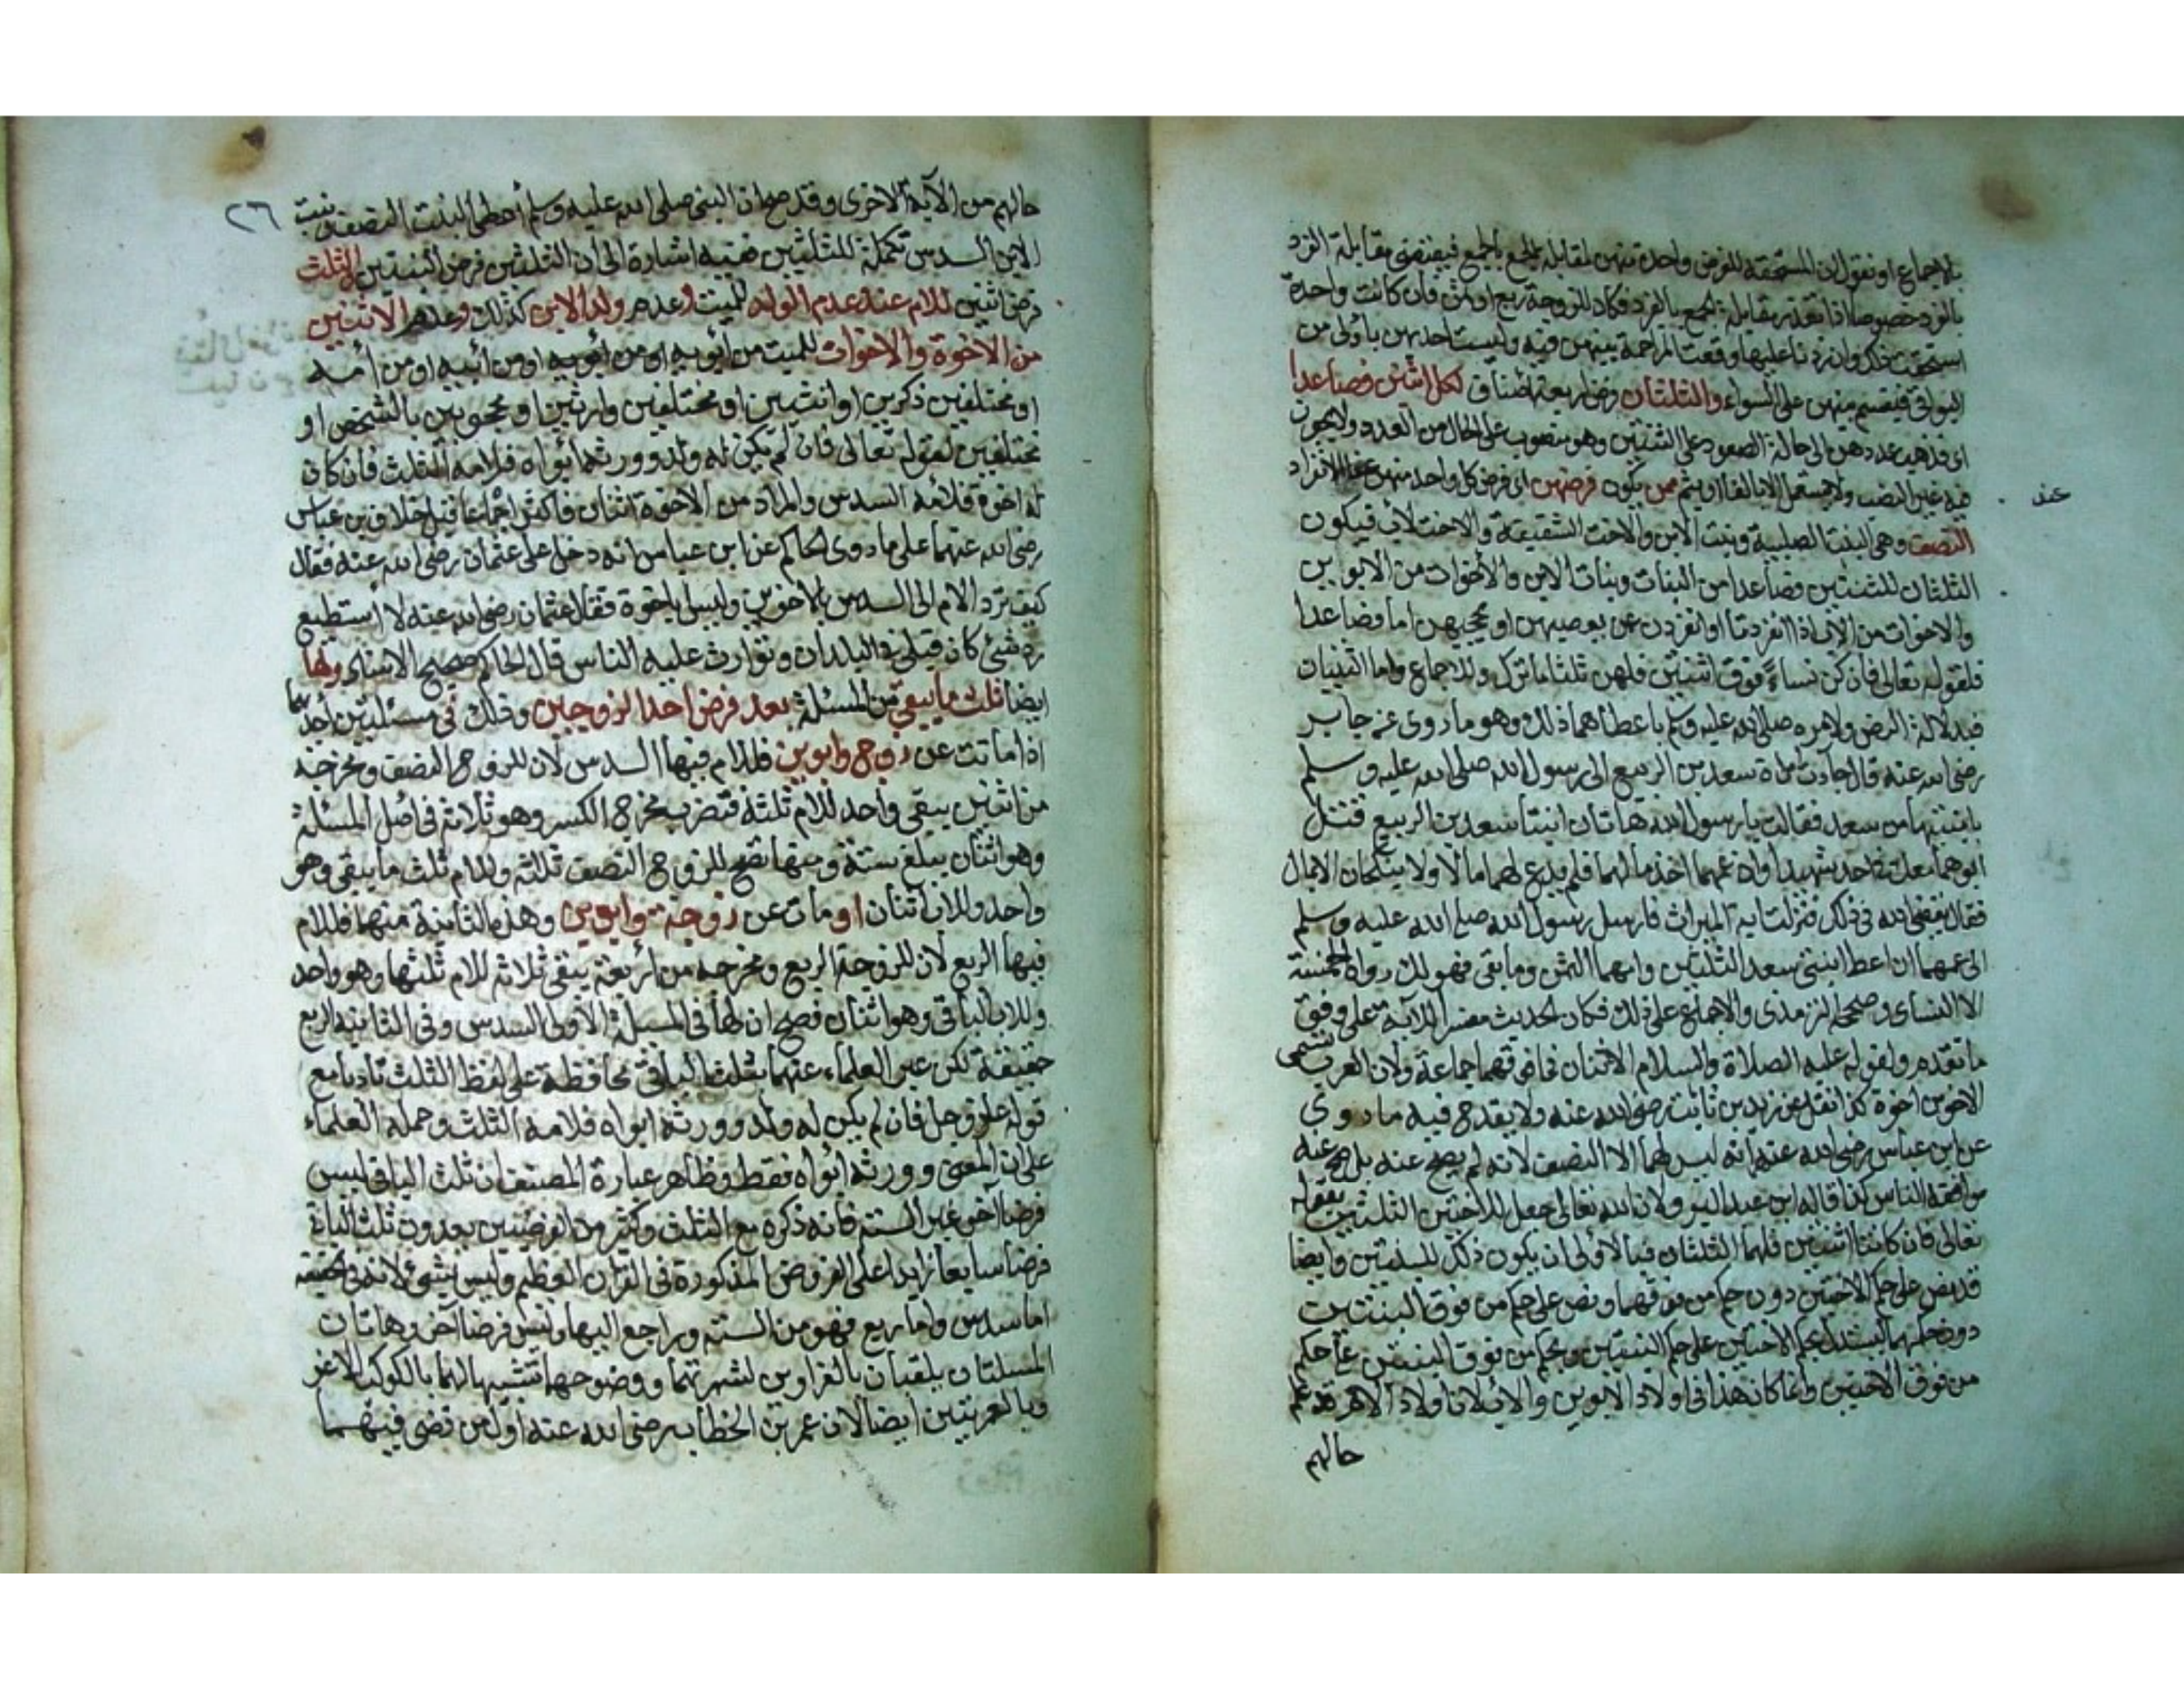 بالاجماع او نقول ان المستحقة للفرض واحدة منهن لمقابلة الجمع بالجمع فيقتضى مقابلة الفرد
بالفرد خصوصا اذا تعذر مقابلة الجمع بالفرد فكان للزوجة ربع او ثمن فان كانت واحدة
استحقت ذلك وان زدنا عليها وقعت المزاحمة بينهن فيه وليست احديهن باولى من
البواقى فيقسم بينهن على السواء والثلثان فرض اربعة اصناف لكل اثنتين فصاعدا
اى فذهب عددهن الى حالة الصعود على الثنتين وهو منصوب على الحال من العدد ولا يجوز
فيه غير النصب ولا يستعمل الا بالفا او بثم ممن يكون فرضهن اى فرض كل واحد منهن عند الانفراد
عند
النصف وهى البنت الصلبية وبنت الابن والاخت الشقيقة والاخت لاب فيكون
الثلثان للثنتين فصاعدا من البنات وبنات الابن والاخوات من الابوين
والاخوات من الاب اذا انفردتا او انفردن عن يعصبهن او يحجبهن اما فصاعدا
فلقوله تعالى فان كن نساء فوق اثنتين فلهن ثلثا ما ترك وللاجماع واما الثنتان
فبدلالة النص ولامره صلى الله عليه وسلم باعطائهما ذلك وهو ما روى عن جابر
رضى الله عنه قال جاءت امراة سعد بن الربيع الى رسول الله صلى الله عليه وسلم
بابنتيها من سعد فقالت يا رسول الله هاتان ابنتا سعد بن الربيع قتل
ابوهما معك يوم احد شهيدا وان عمهما اخذ مالهما فلم يدع لهما مالا ولا ينكحان الا بمال
فقال يقضى الله فى ذلك فنزلت اية الميراث فارسل رسول الله صلى الله عليه وسلم
الى عمهما ان اعط ابنتى سعد الثلثين وامهما الثمن وما بقى فهو لك رواه الخمسة
الا النسائى وصححه الترمذى والاجماع على ذلك فكان الحديث مفسرا للآية على وفق
ما تقدم ولقوله عليه الصلاة والسلام الاثنان فما فوقهما جماعة ولان العرب تسمى
الاخوين اخوة كذا نقل عن زيد بن ثابت رضى الله عنه ولا يقدح فيه ما روى
عن ابن عباس رضى الله عنه انه ليس لهما الا النصف لانه لم يصح عنه بل صح عنه
موافقة الناس كذا قاله ابن عبد البر ولان الله تعالى جعل للاختين الثلثين بقوله
تعالى فان كانتا اثنتين فلهما الثلثان فبالاولى ان يكون ذلك للبنتين وايضا
قد نص على حكم الاختين دون حكم من فوقهما ونص على حكم من فوق البنتين
دون حكمهما ليستدل بحكم الاختين على حكم البنتين وبحكم من فوق البنتين على حكم
من فوق الاختين وانما كان هذا فى اولاد الابوين والاب لان اولاد الام قد علم
حالهم
٢٦
حالهم من الآية الاخرى وقد صح ان النبى صلى الله عليه وسلم أعطى البنت النصف وبنت
الابن السدس تكملة للثلثين ففيه اشارة الى ان الثلثين فرض البنتين والثلث
فرض اثنين للام عند عدم الولد للميت وعدم ولد الابن كذلك وعدم الاثنين
من الاخوة والاخوات للميت من أبويه او من أبيه او من أمه
او مختلفين ذكرين او انثيين او مختلفين وارثين او محجوبين بالشخص او
مختلفين لقوله تعالى فان لم يكن له ولد وورثه أبواه فلامه الثلث فان كان
له اخوة فلامه السدس والمراد من الاخوة اثنان فاكثر اجماعا قبل خلاف بن عباس
رضى الله عنهما على ما روى الحاكم عن ابن عباس انه دخل على عثمان رضى الله عنه فقال
كيف ترد الام الى السدس بالاخوين وليسا باخوة فقال عثمان رضى الله عنه لا أستطيع
رد شئ كان قبلى فى البلدان وتوارث عليه الناس قال الحاكم صحيح الاسناد ولها
ايضا ثلث ما يبقى من المسئلة بعد فرض احد الزوجين وذلك فى مسئلتين احدهما
اذا ماتت عن زوج وابوين فللام فيها السدس لان للزوج النصف ومخرجه
من اثنين يبقى واحد للام ثلثه فتضرب مخرج الكسر وهو ثلاثة فى اصل المسئلة
وهو اثنان يبلغ ستة ومنها تصح للزوج النصف ثلثة وللام ثلث ما يبقى وهو
واحد وللاب اثنان او مات عن زوجة وابوين وهذه الثانية منهما فللام
فيها الربع لان للزوجة الربع ومخرجه من اربعة يبقى ثلاثة للام ثلثها وهو واحد
وللاب الباقى وهو اثنان فصح ان لها فى المسئلة الاولى السدس وفى الثانية الربع
حقيقة لكن عبر العلماء عنهما بثلث الباقى محافظة على لفظ الثلث تأدبا مع
قوله عز وجل فان لم يكن له ولد وورثه ابواه فلامه الثلث وحمله العلماء
على ان المعنى وورثه أبواه فقط وظاهر عبارة المصنف ان ثلث الباقى ليس
فرضا آخر غير الستة فانه ذكره مع الثلث وكثير من الفرضيين يعدون ثلث الباقى
فرضا سابعا زايدا على الفروض المذكورة فى القران العظيم وليس بشئ لانه فى الحقيقة
اما سدس واما ربع فهو من الستة وراجع اليها وليس فرضا آخر وهاتان
المسئلتان يلقبان بالغراوين لشهرتهما ووضوحهما تشبيها لهما بالكوكب الاغر
وبالعمريتين ايضا لان عمر بن الخطاب رضى الله عنه اول من قضى فيهما